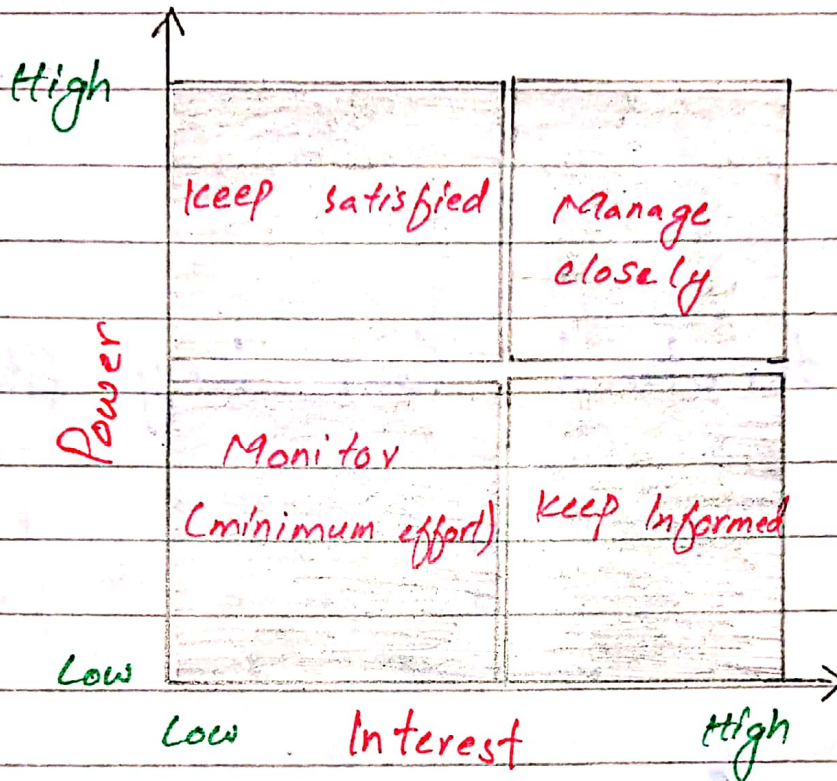 High
Keep satisfied
Manage
closely
Power
Monitor
(minimum effort)
Keep Informed
Low
Low
Interest
High